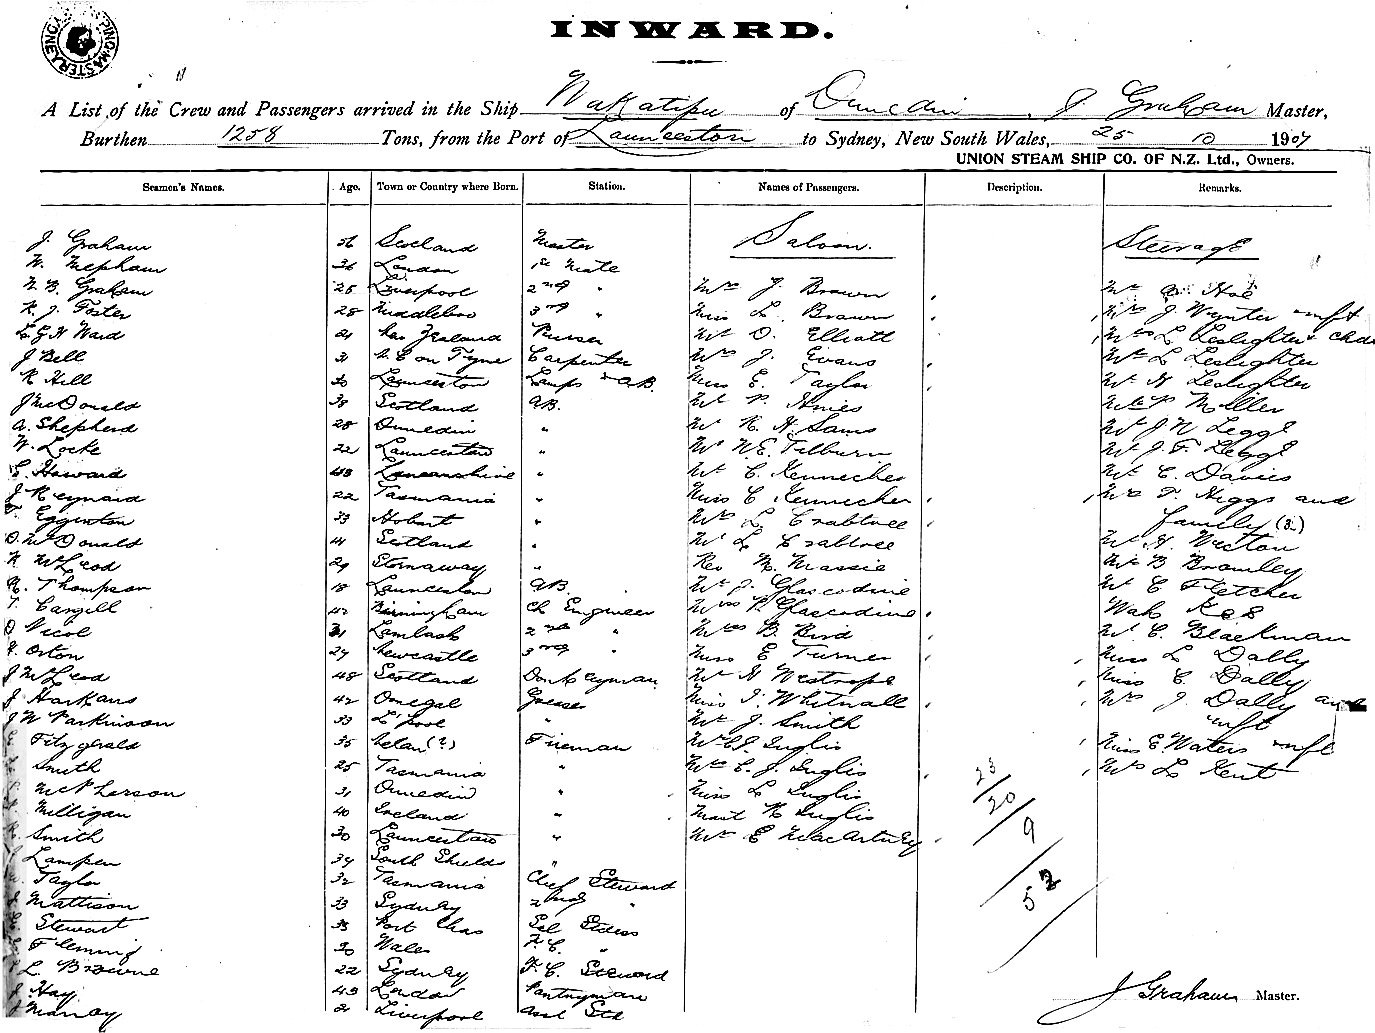 INWARD.
A List of the Crew and Passengers arrived in the Ship Wakatipu of Dunedin, J. Graham Master,
Burthen 1258 Tons, from the Port of Launceston to Sydney, New South Wales, 25 10 1907
UNION STEAM SHIP CO. OF N.Z. Ltd., Owners.
Seamen's Names. Age. Town or Country where Born. Station. Names of Passengers. Description. Remarks.
Saloon. Steerage
J. Graham 56 Scotland Master
W. Mepham 36 London 1st Mate
Graham 25 Liverpool 2nd " Mrs J. Brown Mr Hoe
J. Foster 28 Middlesbro 3rd " Miss L. Brown Mrs J Wynter inft
Ward 21 New Zealand Purser Mr O. Elliott Mrs L Leslighter & chd
J Bell 31 N.C on Tyne Carpenter Mrs J. Evans Mr L Leslighter
R Hill 30 Launceston Lamps & AB. Miss E. Taylor Mr H Leslighter
J McDonald 38 Scotland AB. Mr P. Miller
A. Shepherd 28 Dunedin " Mr R. H. Sams Mr J N Legge
W. Locke 22 Launceston " Mr W E. Tilburn Mr J. F. Legge
C. Howard 43 Lancashire " Mr C. Kennecher Mr C. Davies
J Reynard 22 Tasmania " Miss C Kennecher Mrs F Higgs and
T. Egginton 33 Hobart " Mrs L Crabtree family (3)
D. McDonald 41 Scotland " Mr L Crabtree Mr H. Weston
N McLeod 29 Stornaway " Rev M. Massie Mr B Bromley
R. Thompson 18 Launceston AB. Mr J. Glascodine Mr C Fletcher
T. Cargill 42 Birmingham Ch Engineer Mrs P. Glascodine Wah Kee
D Nicol 31 Lamlash 2nd " Mrs B. Bird Mr C. Blackman
Orton 27 Newcastle 3rd " Miss E Turner Miss L Dally
J McLeod 48 Scotland Donkeyman Mr H Westropp Miss C Dally
J. Harkans 42 Donegal Greaser Miss I. Whitnall Mrs J. Dally and
J W Parkinson 33 L'pool " Mr J. Smith inft
Fitzgerald 35 Fireman Mr C J. Inglis Miss E Waters inft
Smith 25 Tasmania " Mrs C. J. Inglis Mrs L Kent
McPherson 31 Dunedin " Miss L Inglis 23
Milligan 40 Ireland " Mast R Inglis 20
Smith 30 Launceston " Mr E MacArtney 9
Lampen 34 South Shields "
Taylor 32 Tasmania Chief Steward 52
Mattison 33 Sydney 2nd "
Stewart 33 Port Chas Stdess
Fleming 30 Wales F. C. "
L. Browne 22 Sydney F. C. Steward
J. Hay 43 London Pantryman
J Murray 21 Liverpool asst Std
J Graham Master.